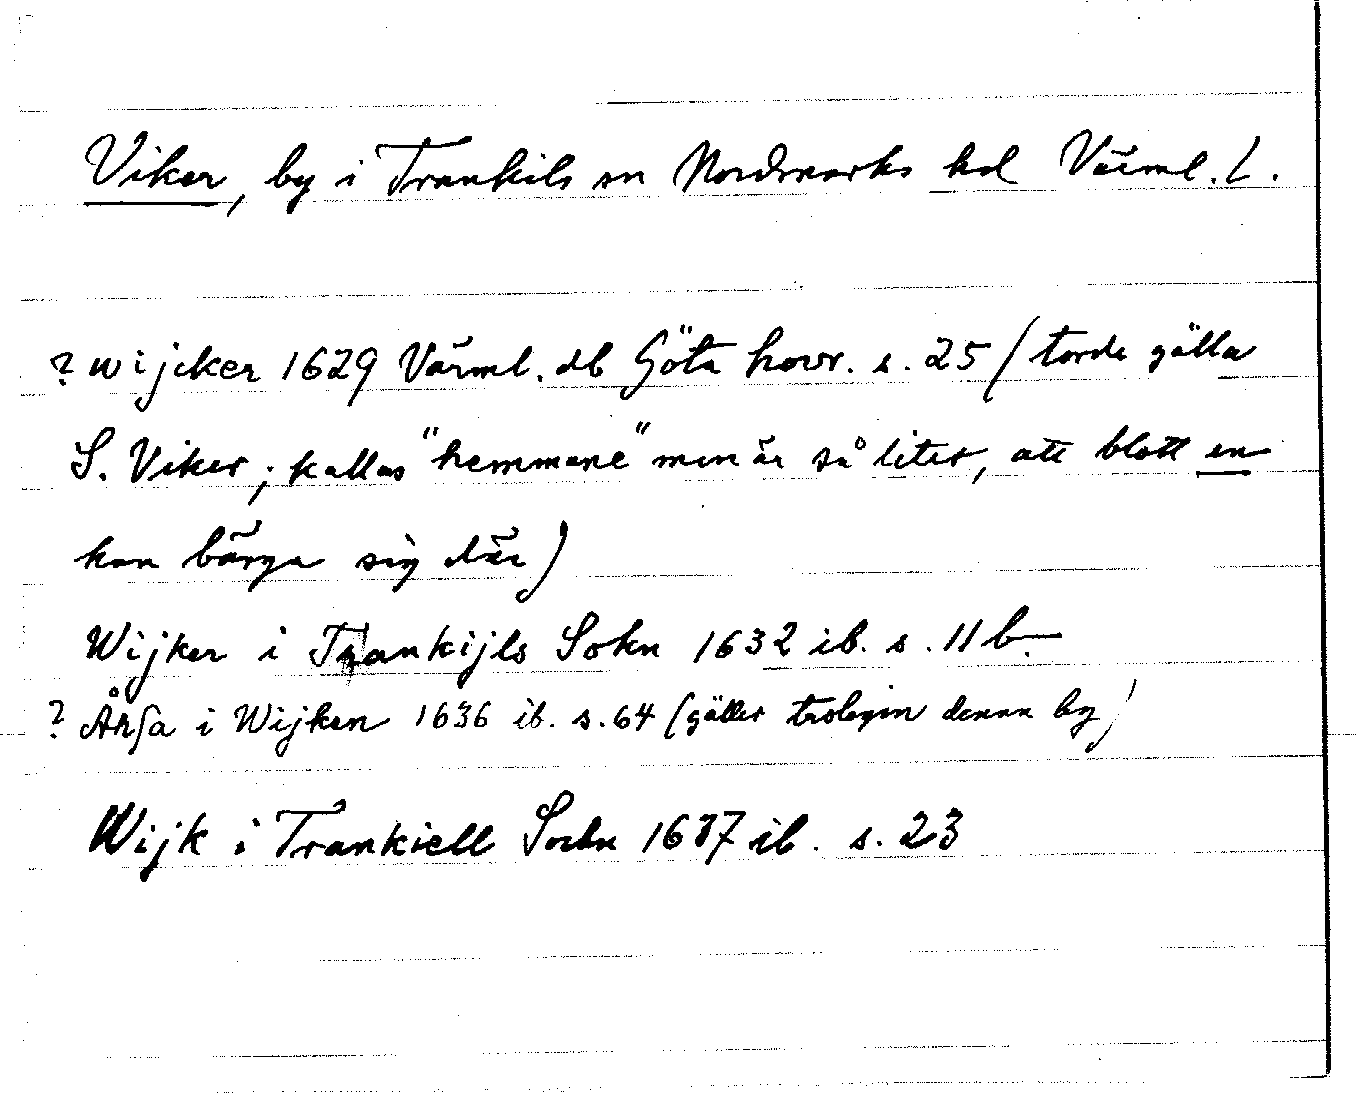 Viker, by i Trankils sn Nordmarks hd Värml. L.
? wijcker 1629 Värml. db Göta hovr. s. 25 (torde gälla
S. Viker; kallas "hemmane" men är så liter, att blott en
kan bärga sig där)
Wijker i Trankijls Sokn 1632 ib. s. 11 b.
? Åhsa i Wijken 1636 ib. s. 64 (gäller troligen denna by)
Wijk i Trankiell Sochn 1637 ib. s. 23